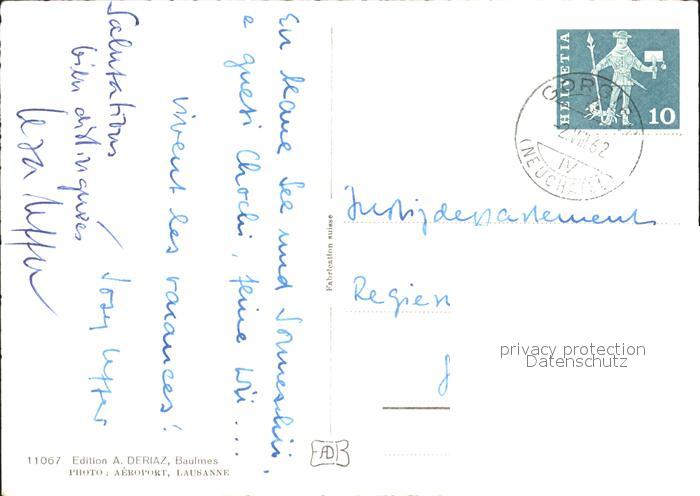 En warme See und Sonneschii,
e gueti Chochi, feine Wii...
Vivent les vacances!
Josy
Salutations
bien distinguées
HELVETIA
10
GORGIER
2.VIII.62
IV
(NEUCHATEL)
Justizdepartement
Regier
g
privacy protection
Datenschutz
Fabrication suisse
AD
11067 Edition A. DERIAZ, Baulmes
PHOTO: AÉROPORT, LAUSANNE